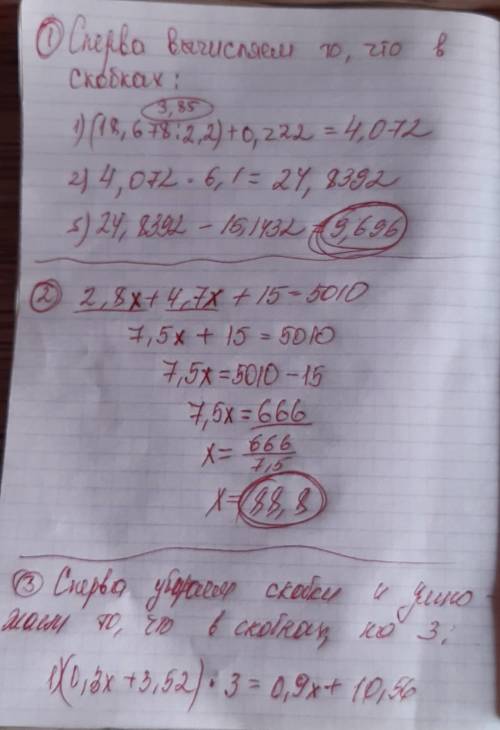 ① Сперва вычисляем то, что в
скобках:
3,85
1) (18,678:2,2)+0,222 = 4,072
2) 4,072 · 6,1 = 24,8392
3) 24,8392 - 15,1432 = 9,696
② 2,8x + 4,7x + 15 = 5010
7,5x + 15 = 5010
7,5x = 5010 - 15
7,5x = 666
x = 666/7,5
x = 88,8
③ Сперва убираем скобки и умно
жаем то, что в скобках, на 3:
1) (0,3x + 3,52) · 3 = 0,9x + 10,56